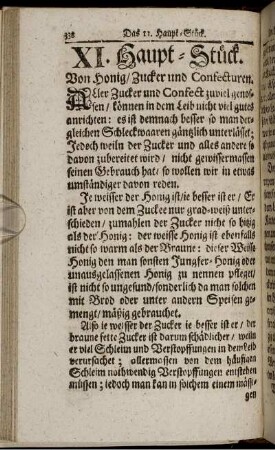 338 Das 11. Haupt-Stück.
XI. Haupt-Stück.
Von Honig/ Zucker und Confecturen.
ALler Zucker und Confect zuviel genos-
sen/ können in dem Leib nicht viel gutes
anrichten: es ist demnach besser so man der-
gleichen Schleckwaaren gäntzlich unterlässet;
Jedoch weiln der Zucker und alles andere so
davon zubereitet wird/ nicht gewissermassen
seinen Gebrauch hat/ so wollen wir in etwas
umständiger davon reden.
Je weisser der Honig ist/ie besser ist er/ Er
ist aber von dem Zucker nur grad-weiß unter-
schieden/ zumahlen der Zucker nicht so hitzig
als der Honig: der weisse Honig ist ebenfalls
nicht so warm als der Braune: dieser Weisse
Honig den man sonsten Jungfer-Honig oder
unausgelassenen Honig zu nennen pfleget/
ist nicht so ungesund/sonderlich da man solchen
mit Brod oder unter andern Speisen ge-
mengt/ mäßig gebrauchet.
Also ie weisser der Zucker ie besser ist er/ der
braune fette Zucker ist darum schädlicher/ weiln
er viel Schleim und Verstopffungen in dem Leib
verursachet; allermassen von dem häuffigen
Schleim nothwendig Verstopffungen entstehen
müssen; iedoch man kan in solchem einem mäßi-
gen